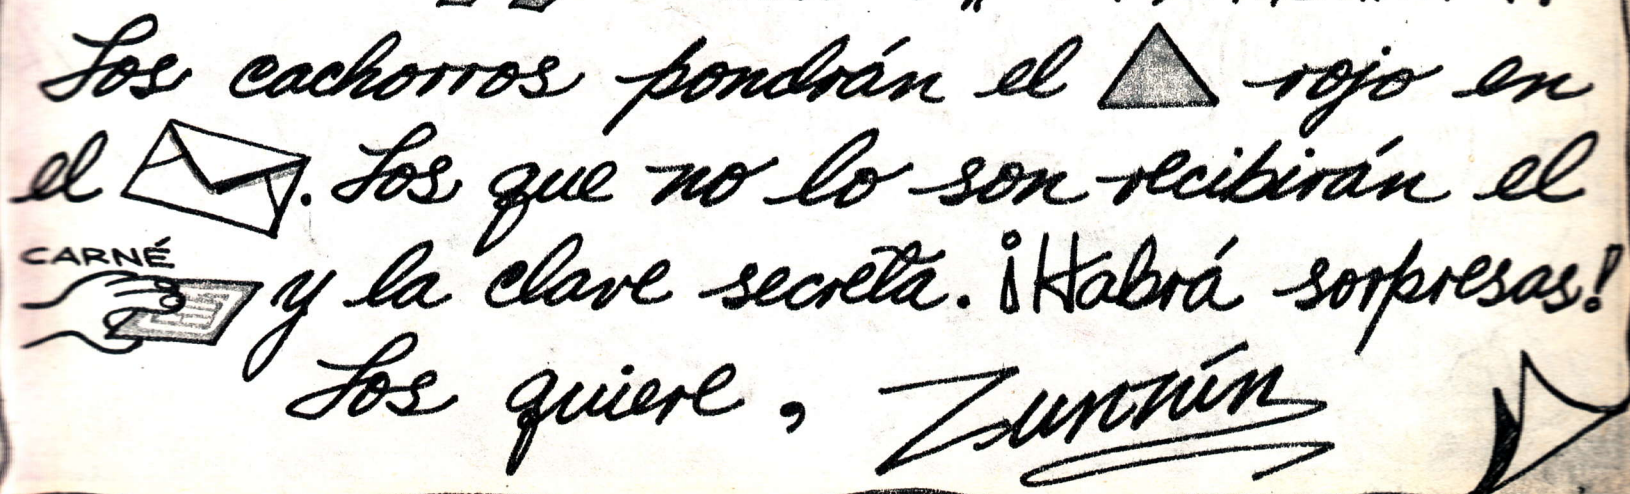 Los cachorros pondrán el rojo en
el . Los que no lo son recibirán el
CARNÉ
y la clave secreta. ¡Habrá sorpresas!
Los quiere, Zunzún